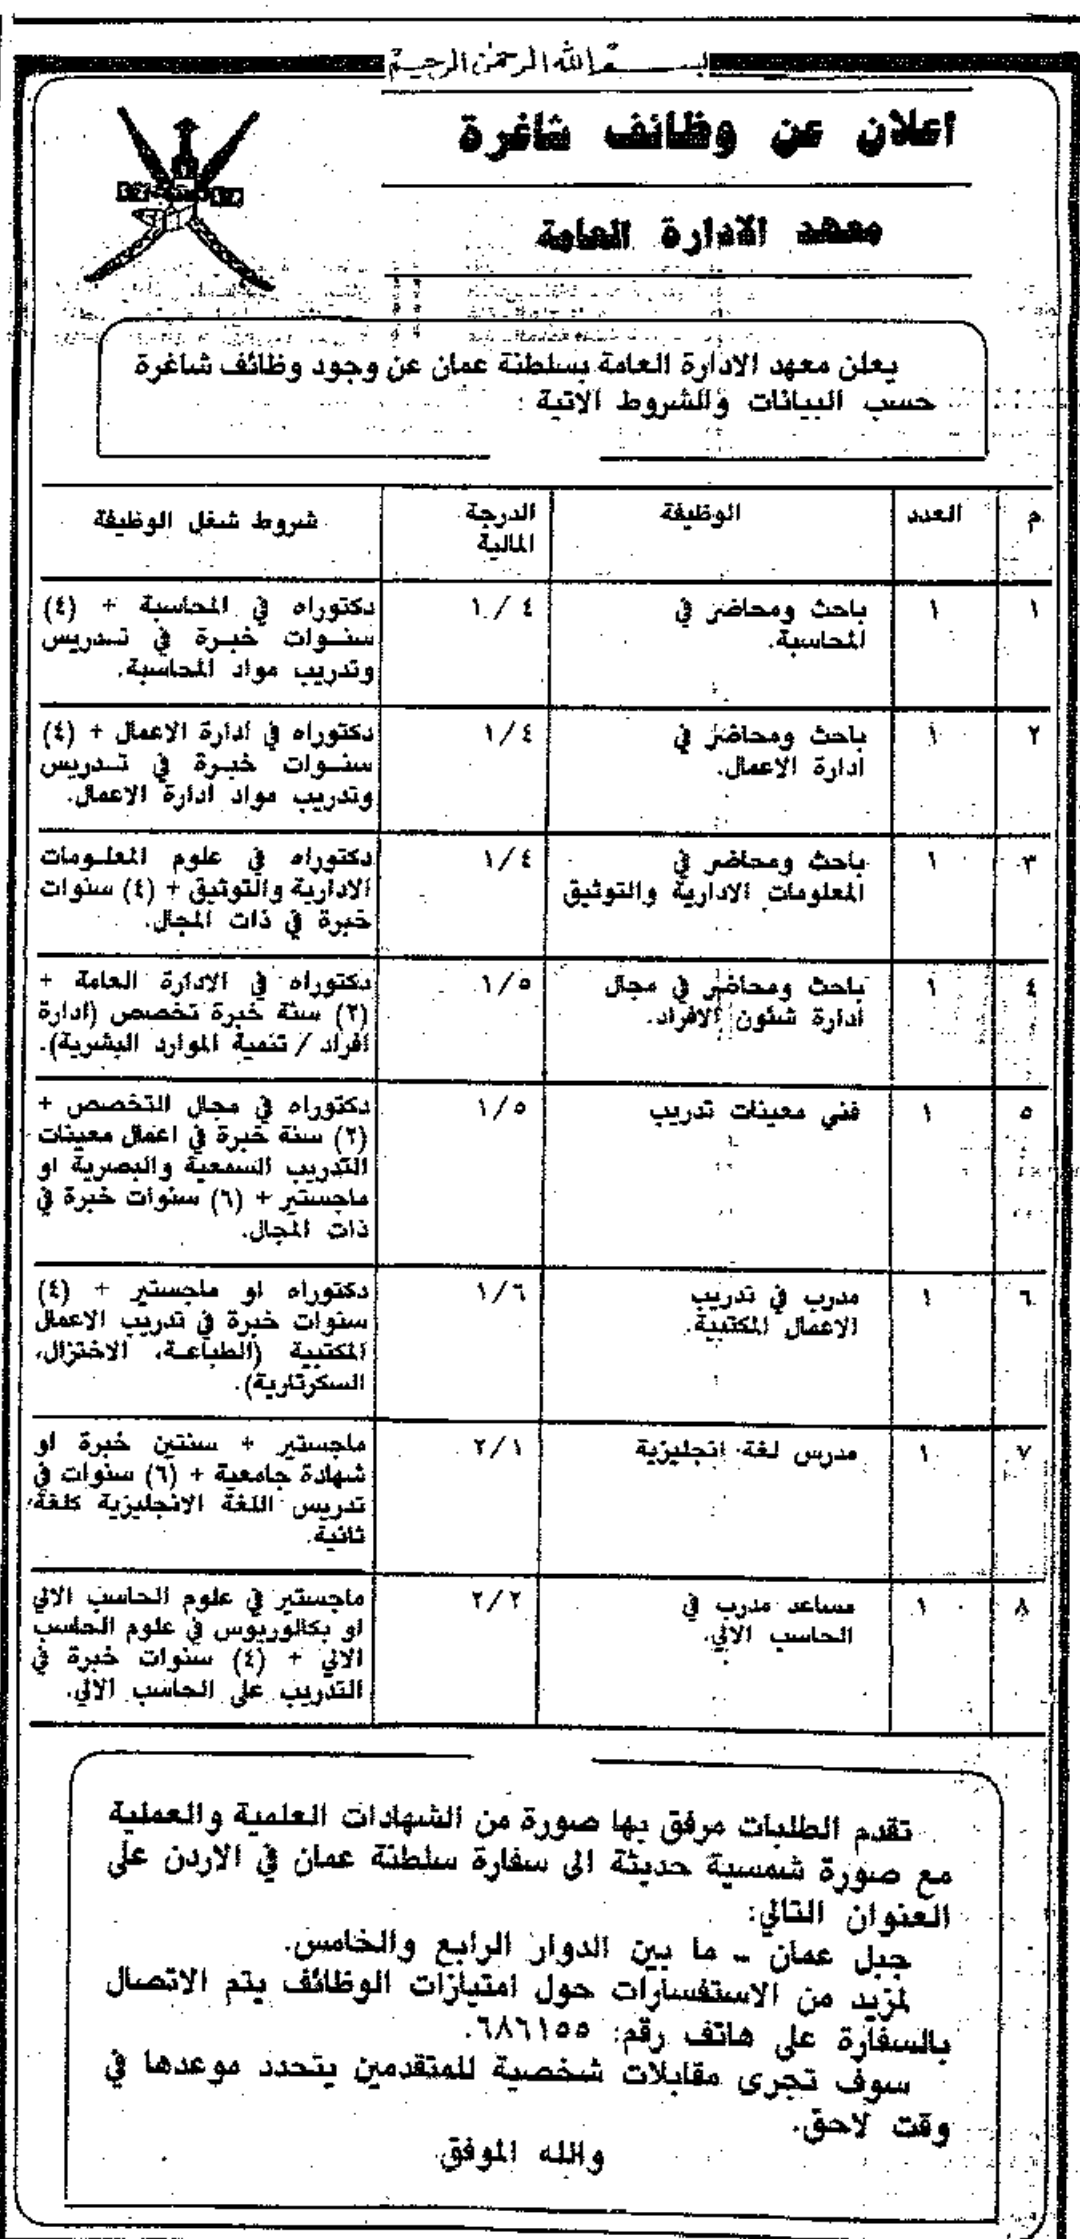 بسم الله الرحمن الرحيم
اعلان عن وظائف شاغرة
معهد الادارة العامة
يعلن معهد الادارة العامة بسلطنة عمان عن وجود وظائف شاغرة
حسب البيانات والشروط الاتية :
م العدد الوظيفة الدرجة المالية شروط شغل الوظيفة
١ ١ باحث ومحاضر في ٤ / ١ دكتوراه في المحاسبة + (٤)
المحاسبة. سنوات خبرة في تدريس
وتدريب مواد المحاسبة.
٢ ١ باحث ومحاضر في ١/٤ دكتوراه في ادارة الاعمال + (٤)
ادارة الاعمال. سنوات خبرة في تدريس
وتدريب مواد ادارة الاعمال.
٣ ١ باحث ومحاضر في ١/٤ دكتوراه في علوم المعلومات
المعلومات الادارية والتوثيق الادارية والتوثيق + (٤) سنوات
خبرة في ذات المجال.
٤ ١ باحث ومحاضر في مجال ١/٥ دكتوراه في الادارة العامة +
ادارة شئون الافراد. (٢) سنة خبرة تخصص (ادارة
افراد / تنمية الموارد البشرية).
٥ ١ فني معينات تدريب ١/٥ دكتوراه في مجال التخصص +
(٢) سنة خبرة في اعمال معينات
التدريب السمعية والبصرية او
ماجستير + (٦) سنوات خبرة في
ذات المجال.
٦ ١ مدرب في تدريب ١/٦ دكتوراه او ماجستير + (٤)
الاعمال المكتبية. سنوات خبرة في تدريب الاعمال
المكتبية (الطباعة، الاختزال،
السكرتارية).
٧ ١ مدرس لغة انجليزية ٢/١ ماجستير + سنتين خبرة او
شهادة جامعية + (٦) سنوات في
تدريس اللغة الانجليزية كلغة
ثانية.
٨ ١ مساعد مدرب في ٢/٢ ماجستير في علوم الحاسب الالي
الحاسب الالي. او بكالوريوس في علوم الحاسب
الالي + (٤) سنوات خبرة في
التدريب على الحاسب الالي.
تقدم الطلبات مرفق بها صورة من الشهادات العلمية والعملية
مع صورة شمسية حديثة الى سفارة سلطنة عمان في الاردن على
العنوان التالي:
جبل عمان - ما بين الدوار الرابع والخامس.
لمزيد من الاستفسارات حول امتيازات الوظائف يتم الاتصال
بالسفارة على هاتف رقم: ٦٨٦١٥٥.
سوف تجرى مقابلات شخصية للمتقدمين يتحدد موعدها في
وقت لاحق.
والله الموفق